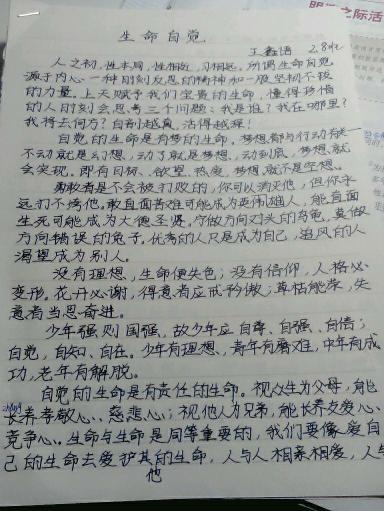 生命自觉
王鑫语 2.8班
人之初，性本善，性相近，习相远。所谓生命自觉，
源于内心一种时刻反思的精神和一股坚韧不拔
的力量。上天赋予我们宝贵的生命，懂得珍惜
的人时刻会思考三个问题：我是谁？我在哪里？
我将去何方？自剖越真，活得越深！
自觉的生命是有梦的生命。梦想都与行动有关
不动就是幻想，动了就是梦想，动到底，梦想就
会实现。即有目标、欲望、热度，梦想就不是空想。
勇敢者是不会被打败的，你可以消灭他，但你永
远打不垮他。敢直面苦难可能成为英雄雄人，能直面
生死可能成为大德圣贤。宁做方向对头的乌龟，莫做
方向错误的兔子。优秀的人只是成为自己，追风的人
渴望成为别人。
没有理想，生命便失色；没有信仰，人格必
变形。花开必谢，得意者应戒矜傲；草枯能荣，失
意者当思奋进。
少年强则国强，故少年应自尊、自强、自信；
自觉，自知、自在。少年有理想、青年有磨难，中年有成
功，老年有解脱。
自觉的生命是有责任的生命。视众生为父母，能
长养孝敬心、慈悲心；视他人为兄弟，能长养友爱心、
竞争心。生命与生命是同等重要的，我们要像爱自
己的生命去爱护其他的生命，人与人相亲相爱，人与